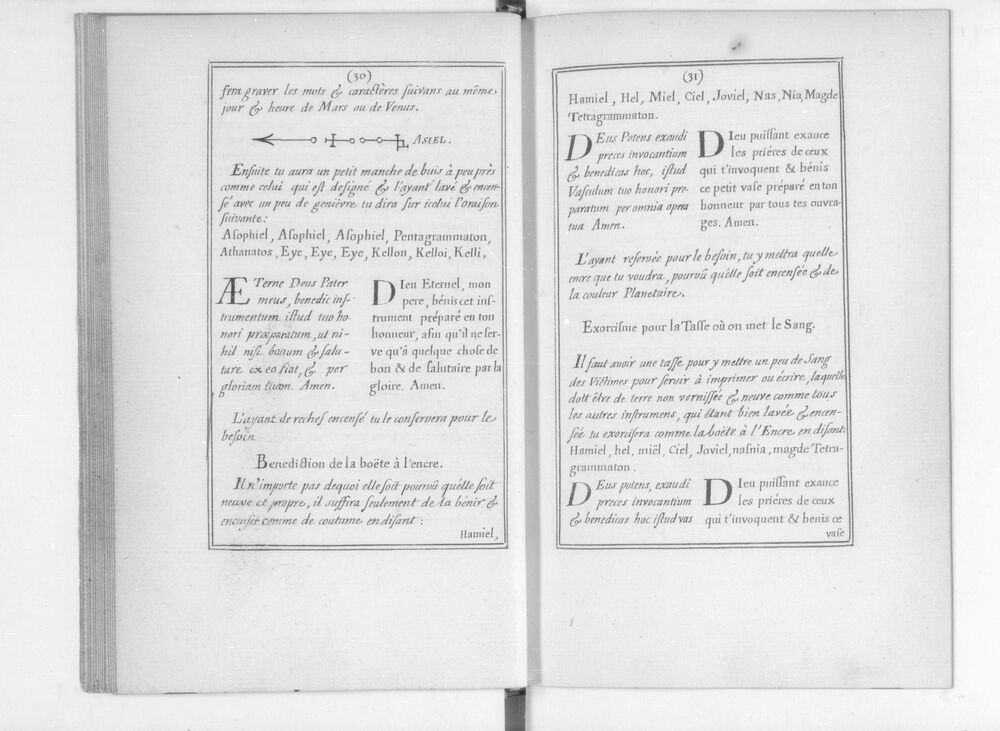 (30)
fera graver les mots & caractères suivans au même
jour & heure de Mars ou de Venus.
ASIEL.
Ensuite tu aura un petit manche de buis à peu près
comme celui qui est designé & l'ayant lavé & encen-
sé avec un peu de genièvre tu dira sur icelui l'oraison
suivante:
Asophiel, Asophiel, Asophiel, Pentagrammaton,
Athanatos, Eye, Eye, Eye, Kellon, Kelloi, Kelli,
ÆTerne Deus Pater
meus, benedic ins-
trumentum istud tuo ho-
nori præparatum, ut ni-
hil nisi bonum & salu-
tare ex eo fiat, & per
gloriam tuam. Amen.
DIeu Eternel, mon
pere, bénis cet ins-
trument préparé en ton
honneur, afin qu'il ne ser-
ve qu'à quelque chose de
bon & de salutaire par la
gloire. Amen.
L'ayant de rechef encensé tu le conservera pour le
besoin
Benediction de la boëte à l'encre.
Il n'importe pas dequoi elle soit pourvû qu'elle soit
neuve et propre, il suffira seulement de la bénir &
encenser comme de coutume en disant:
Hamiel,
(31)
Hamiel, Hel, Miel, Ciel, Joviel, Nas, Nia, Magde
Tetragrammaton.
DEus Potens exaudi
preces invocantium
& benedicas hoc, istud
Vasculum tuo honori pre-
paratum per omnia opera
tua Amen.
DIeu puissant exauce
les priéres de ceux
qui t'invoquent & bénis
ce petit vase préparé en ton
honneur par tous tes ouvra-
ges. Amen.
L'ayant reservée pour le besoin, tu y mettra quelle
encre que tu voudra, pourvû qu'elle soit encensée & de
la couleur Planetaire.
Exorcisme pour la Tasse où on met le Sang.
Il faut avoir une tasse pour y mettre un peu de Sang
des Victimes pour servir à imprimer ou écrire, laquelle
doit être de terre non vernissée & neuve comme tous
les autres instrumens, qui étant bien lavée & encen-
sée tu exorcisera comme la boëte à l'Encre en disant:
Hamiel, hel, miël, Ciel, Joviel, nasnia, magde Tetra-
grammaton.
DEus potens, exaudi
preces invocantium
& benedicas hoc istud vas
DIeu puissant exauce
les priéres de ceux
qui t'invoquent & benis ce
vase